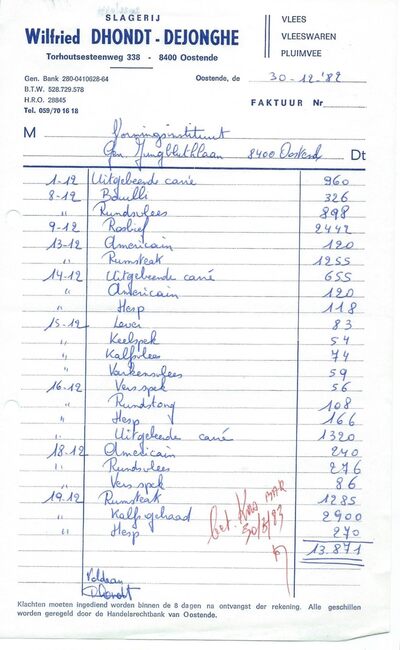 SLAGERIJ
Wilfried DHONDT - DEJONGHE
Torhoutsesteenweg 338 - 8400 Oostende
VLEES
VLEESWAREN
PLUIMVEE
Gen. Bank 280-0410628-64
B.T.W. 528.729.578
H.R.O. 28845
Tel. 059/70 16 18
Oostende, de 30-12-'82
FAKTUUR Nr
M Vormingsinstituut
Gen. Jungbluthlaan 8400 Oostende Dt
1-12 Uitgebeende carré 960
8-12 Bouilli 326
" Rundsvlees 898
9-12 Rosbief 2442
13-12 Americain 120
" Rumsteak 1255
14-12 Uitgebeende carré 655
" Americain 120
" Hesp 118
15-12 Lever 83
" Keelspek 54
" Kalfsvlees 74
" Varkensvlees 59
16-12 Vers spek 56
" Rundstong 108
" Hesp 166
" Uitgebeende carré 1320
18-12 Americain 240
" Rundsvlees 276
" Vers spek 86
19-12 Rumsteak 1285
" Kalfsgehaad 2900
" Hesp 270
13.871
30/3/83
Voldaan
Dhondt
Klachten moeten ingediend worden binnen de 8 dagen na ontvangst der rekening. Alle geschillen
worden geregeld door de Handelsrechtbank van Oostende.